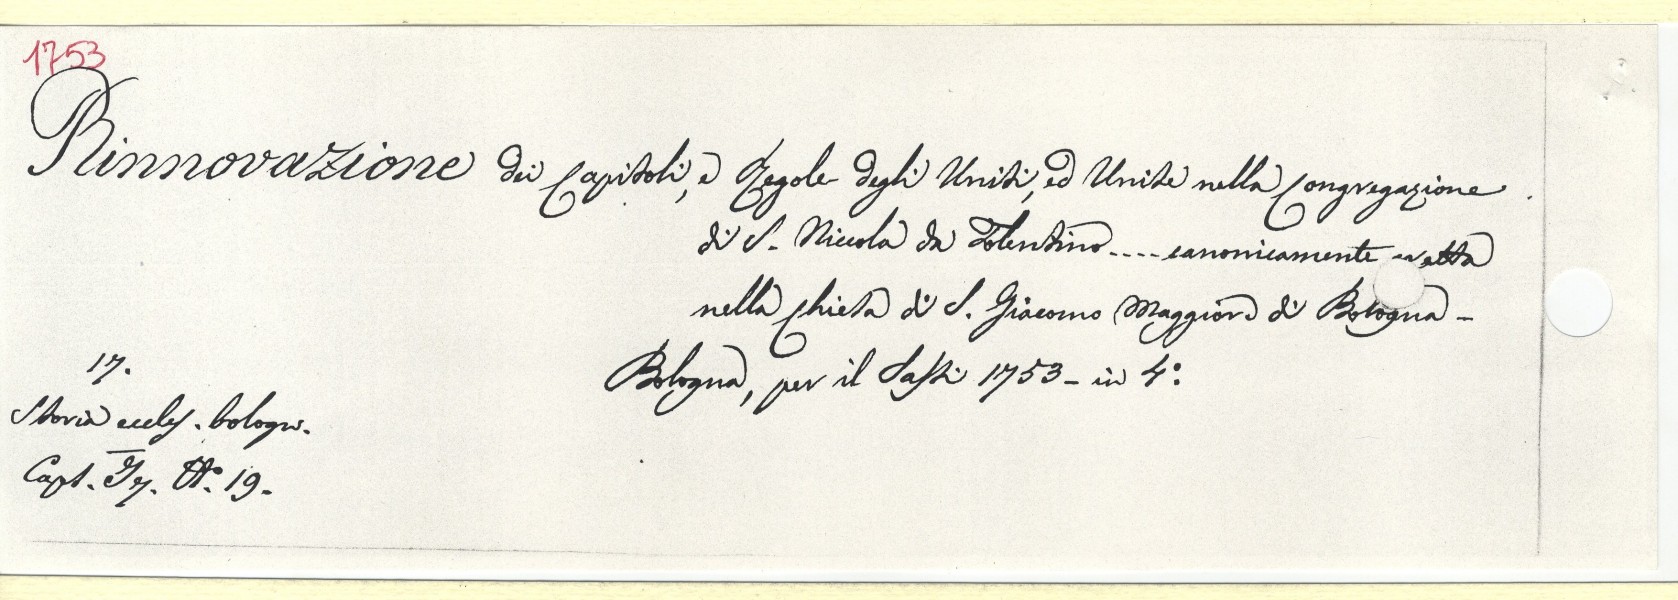 1753
Rinnovazione dei Capitoli, e Regole degli Uniti, ed Unite nella Congregazione
di S. Niccola da Tolentino .... canonicamente eretta
nella Chiesa di S. Giacomo Maggiore di Bologna -
Bologna, per il Sassi 1753 - in 4:
17.
Storia eccles. bologn.
Cart. N.º 19.